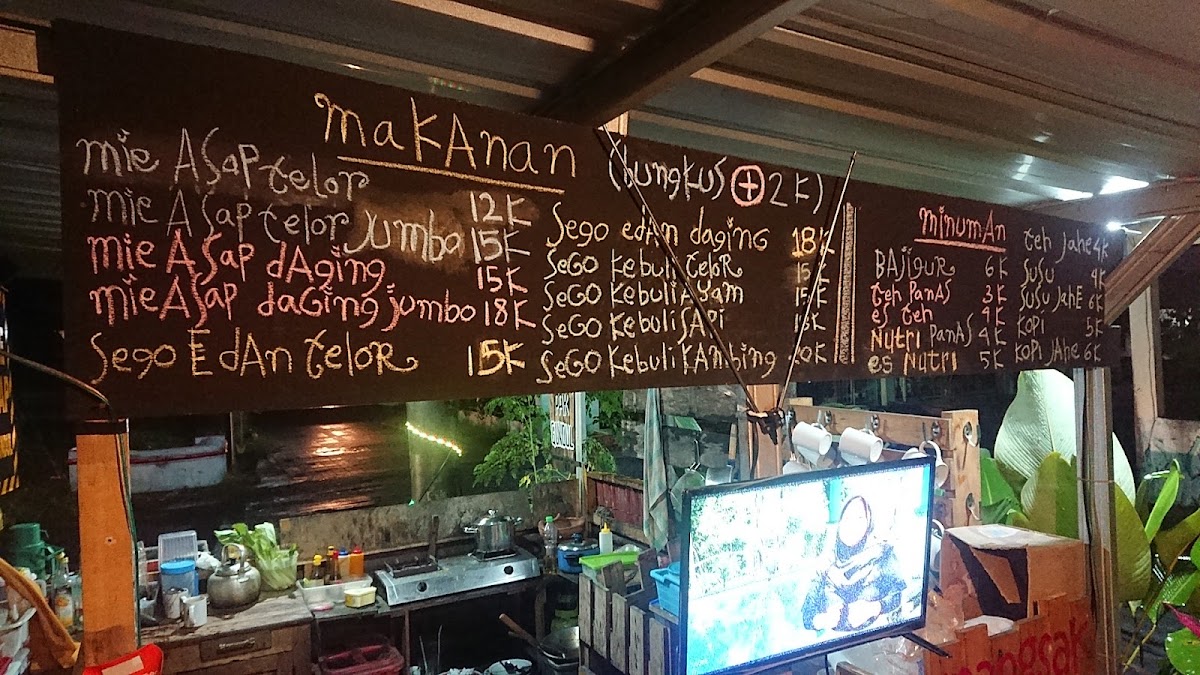 maKAnan
(bungkus + 2K)
mie Asap telor 12K
mie Asap telor Jumbo 15K
mie Asap dAging 15K
mie Asap daGing jumbo 18K
Sego EdAn teloR 15K
Sego edAn daging 18K
SeGO Kebuli teloR
SeGO Kebuli Ayam
SeGO Kebuli SAPi
SeGO Kebuli KAmbing
minumAn
BAjiguR 6K
teh PanAS 3K
es teh 4K
NutRi PanAS 4K
es NutRi 5K
teh JaHe 4K
SuSu 4K
SuSu JAHE 6K
KoPi 5K
KoPi JAHe 6K